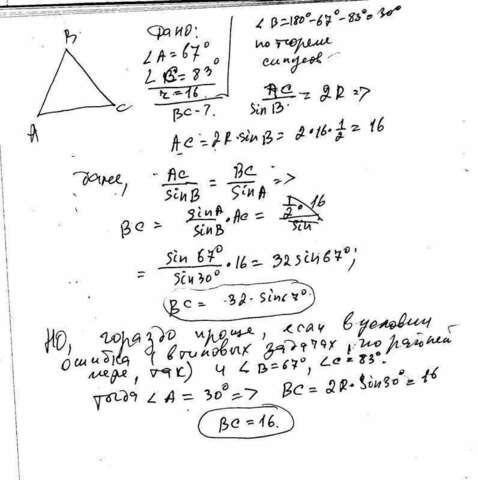 B
A
C
Дано:
∠A = 67°
∠C = 83°
r = 16
BC - ?
∠B = 180° - 67° - 83° = 30°
по теореме
синусов
AC / sin B = 2R =>
AC = 2R · sin B = 2 · 16 · 1/2 = 16
далее, AC / sin B = BC / sin A =>
BC = sin A / sin B · AC =
= sin 67° / sin 30° · 16 = 32 sin 67°;
BC = 32 · sin 67°
Но, гораздо проще, если в условии
ошибка (в типовых задачах, по крайней
мере, так) и ∠B = 67°, ∠C = 83°.
тогда ∠A = 30° => BC = 2R · sin 30° = 16
BC = 16.